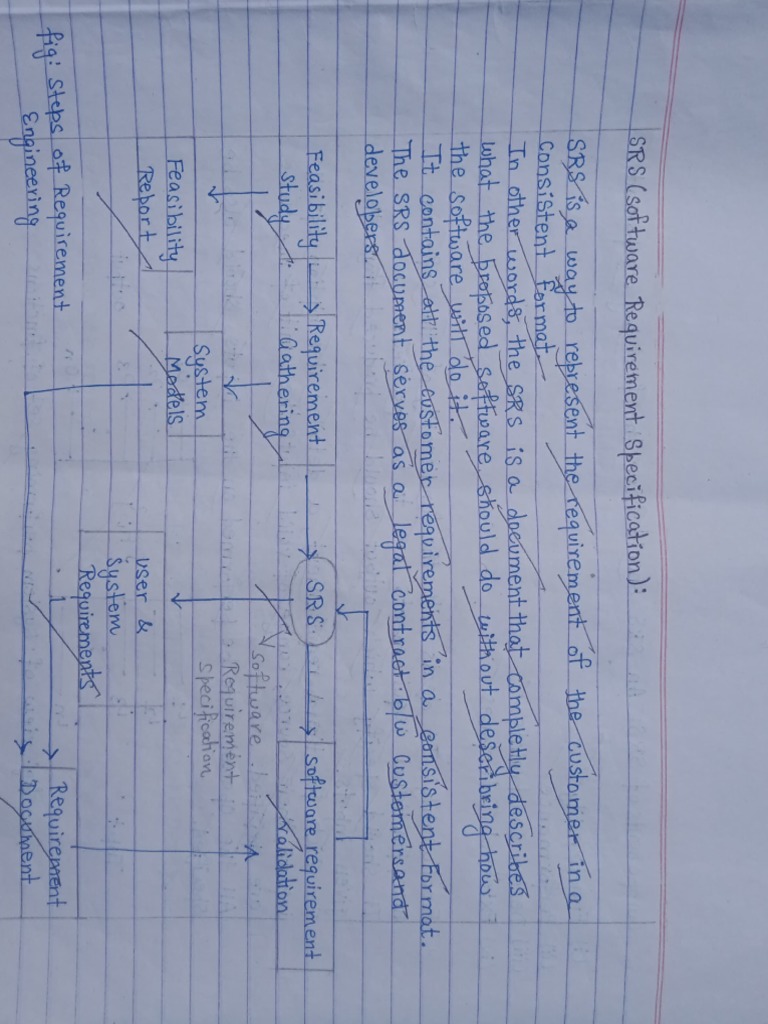 SRS (Software Requirement Specification):
SRS is a way to represent the requirement of the customer in a
consistent format.
In other words, the SRS is a document that completly describes
what the proposed software should do without describing how
the software will do it.
It contains all the customer requirements in a consistent Format.
The SRS document serves as a legal contract b/w customers and
developers.
Feasibility
Study
Requirement
Gathering
SRS
software requirement
Validation
Software
Requirement
Specification
Feasibility
Report
System
Models
user &
System
Requirements
Requirement
Document
fig: Steps of Requirement
Engineering